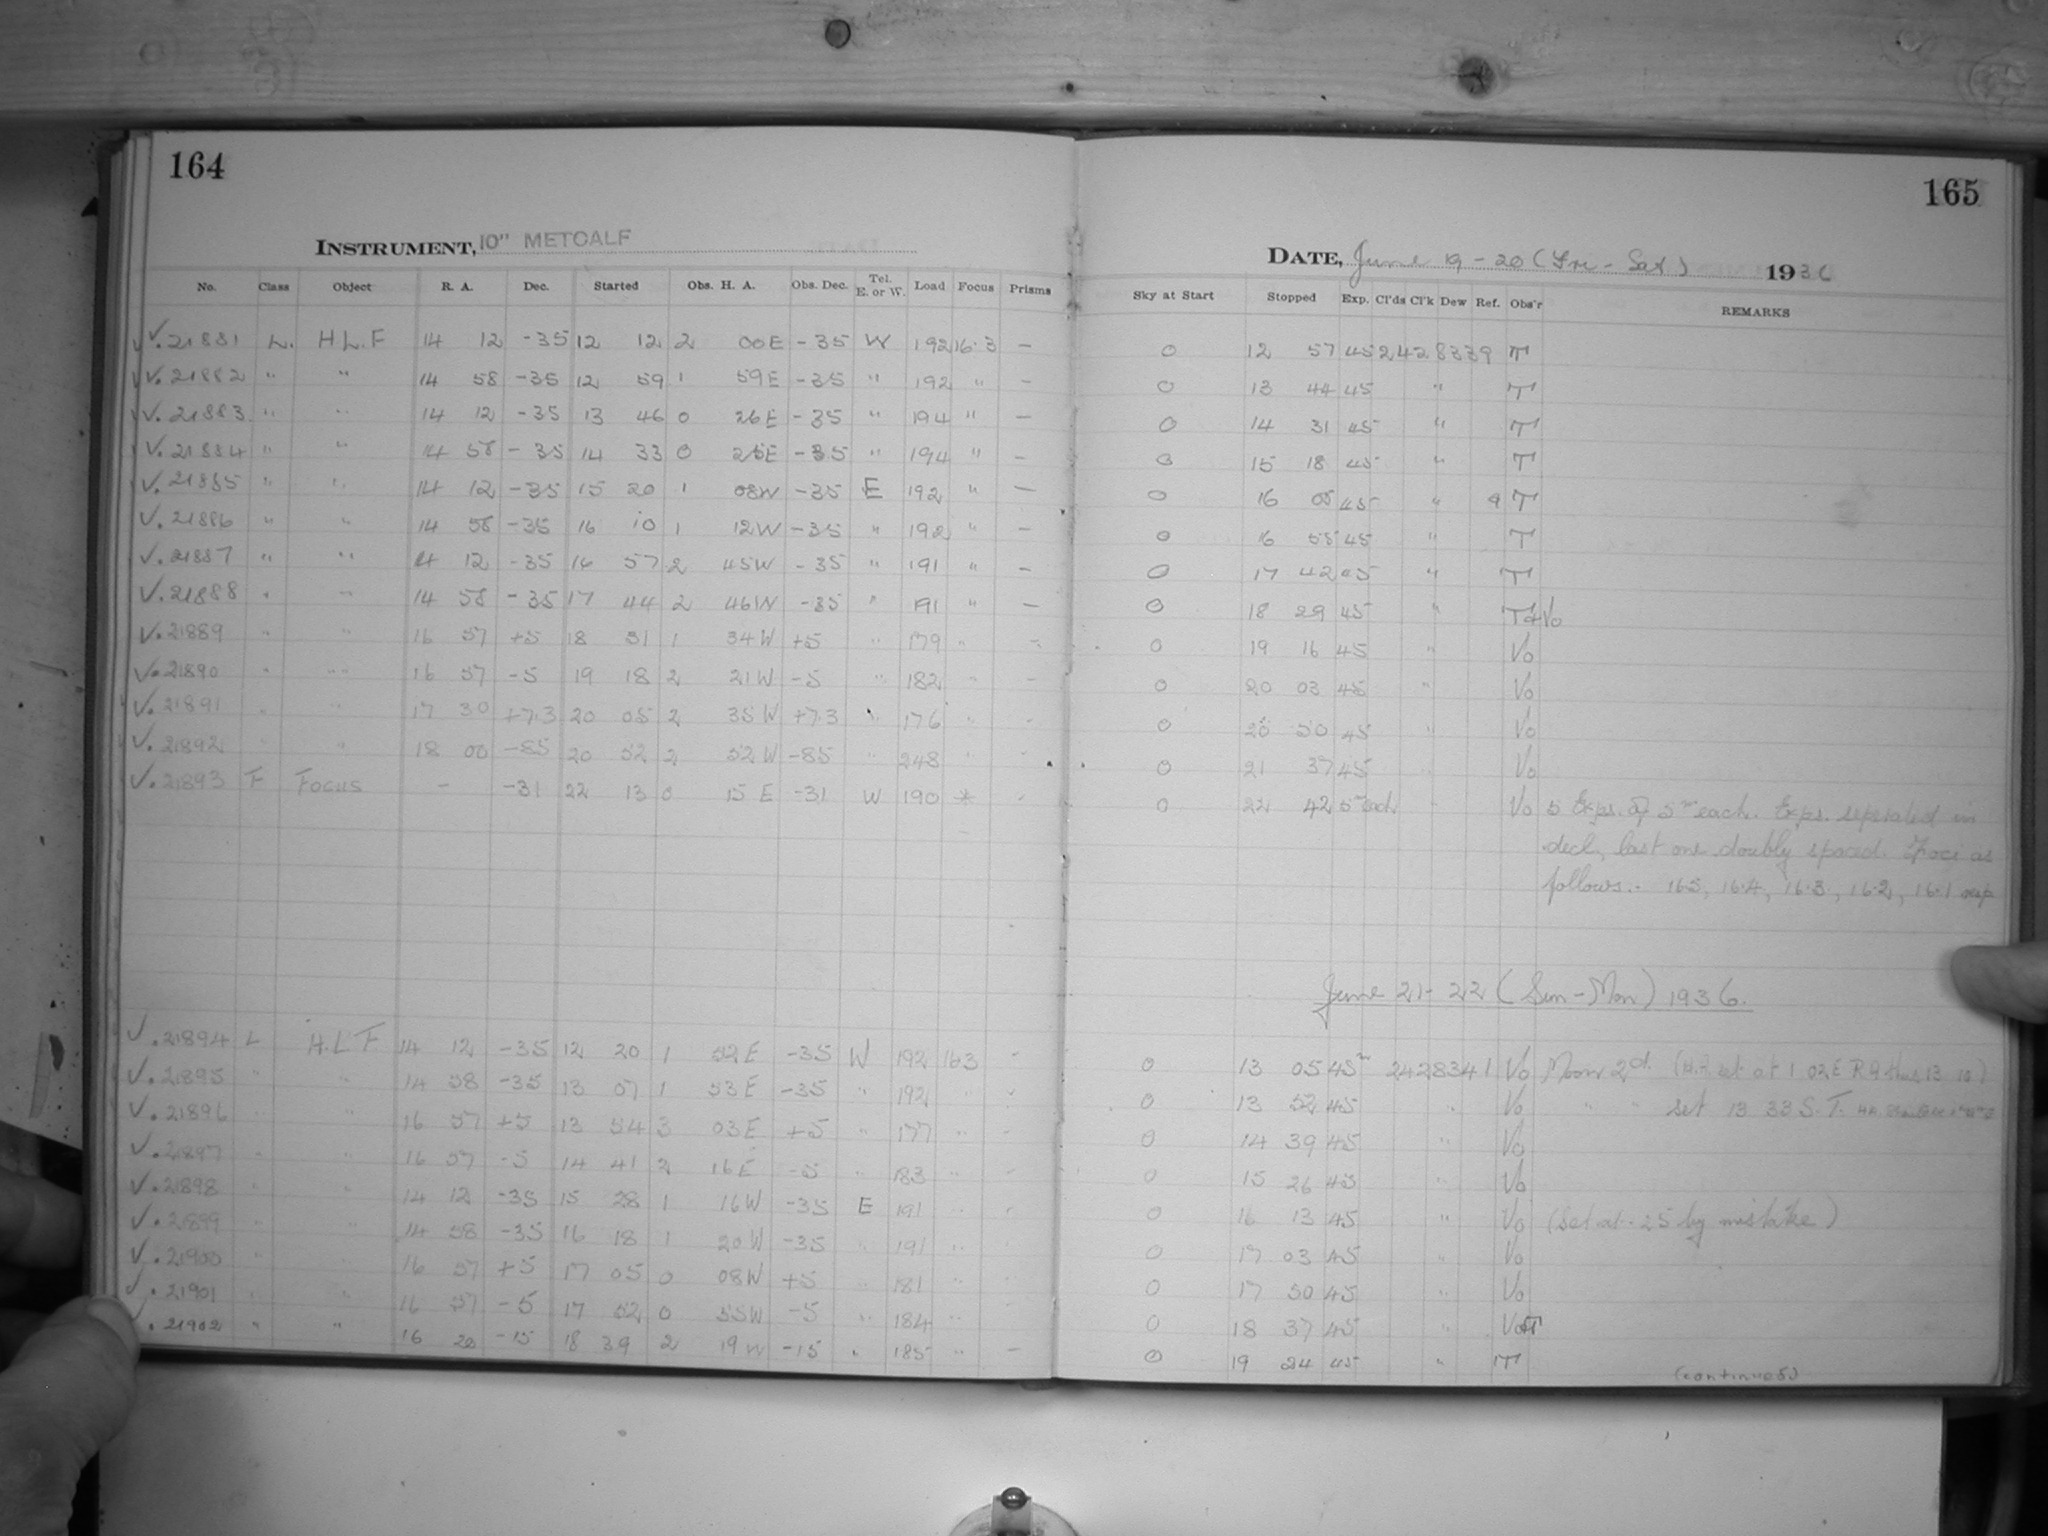 164
165
INSTRUMENT, 10" METCALF
DATE, June 19-20 (Fri-Sat) 1936
No. Class Object R. A. Dec. Started Obs. H. A. Obs. Dec. Tel. E. or W. Load Focus Prisms Sky at Start Stopped Exp. Cl'ds Cl'k Dew Ref. Obs'r REMARKS
V.21881 L. H L F 14 12 -35 12 12 2 00E -35 W 192 16.3 — 0 12 57 45 2428339 T
V.21882 " " 14 58 -35 12 59 1 59E -35 " 192 " — 0 13 44 45 " T
V.21883 " " 14 12 -35 13 46 0 26E -35 " 194 " — 0 14 31 45 " T
V.21884 " " 14 58 -35 14 33 0 25E -35 " 194 " — 0 15 18 45 " T
V.21885 " " 14 12 -35 15 20 1 08W -35 E 192 " — 0 16 05 45 " 9 T
V.21886 " " 14 58 -35 16 10 1 12W -35 " 192 " — 0 16 55 45 " T
V.21887 " " 14 12 -35 16 57 2 45W -35 " 191 " — 0 17 42 45 " T
V.21888 " " 14 58 -35 17 44 2 46W -35 " 191 " — 0 18 29 45 " T+Vo
V.21889 " " 16 57 +5 18 31 1 34W +5 " 179 " - 0 19 16 45 " Vo
V.21890 " " 16 57 -5 19 18 2 21W -5 " 182 " - 0 20 03 45 " Vo
V.21891 " " 17 30 +7.3 20 05 2 35W +7.3 " 176 " - 0 20 50 45 " Vo
V.21892 " " 18 00 -85 20 52 2 52W -85 " 248 " - 0 21 37 45 " Vo
V.21893 F FOCUS - -31 22 13 0 15 E -31 W 190 * - 0 22 42 5m each " Vo 5 Exps. of 5m each. Exps. seprated in
decl, last one doubly spaced. Foci as
follows.- 16.5, 16.4, 16.3, 16.2, 16.1 resp
June 21-22 (Sun-Mon) 1936.
V.21894 L H.L F 14 12 -35 12 20 1 52E -35 W 192 163 - 0 13 05 45m 2428341 Vo Moon 2d. (H.A. set at 1 02E R A thus 13 10)
V.21895 " " 14 58 -35 13 07 1 53E -35 " 192 " - 0 13 52 45 " Vo " " set 13 33 S.T.
V.21896 " " 16 57 +5 13 54 3 03E +5 " 177 " - 0 14 39 45 " Vo
V.21897 " " 16 57 -5 14 41 2 16E -5 " 183 " - 0 15 26 45 " Vo
V.21898 " " 14 12 -35 15 28 1 16W -35 E 191 " - 0 16 13 45 " Vo (Set at -25 by mistake)
V.21899 " " 14 58 -35 16 18 1 20W -35 " 191 " - 0 17 03 45 " Vo
V.21900 " " 16 57 +5 17 05 0 08W +5 " 181 " - 0 17 50 45 " Vo
V.21901 " " 16 57 -5 17 52 0 55W -5 " 184 " - 0 18 37 45 " Vo+T
V.21902 " " 16 20 -15 18 39 2 19W -15 " 185 " — 0 19 24 45 " T
(continued)